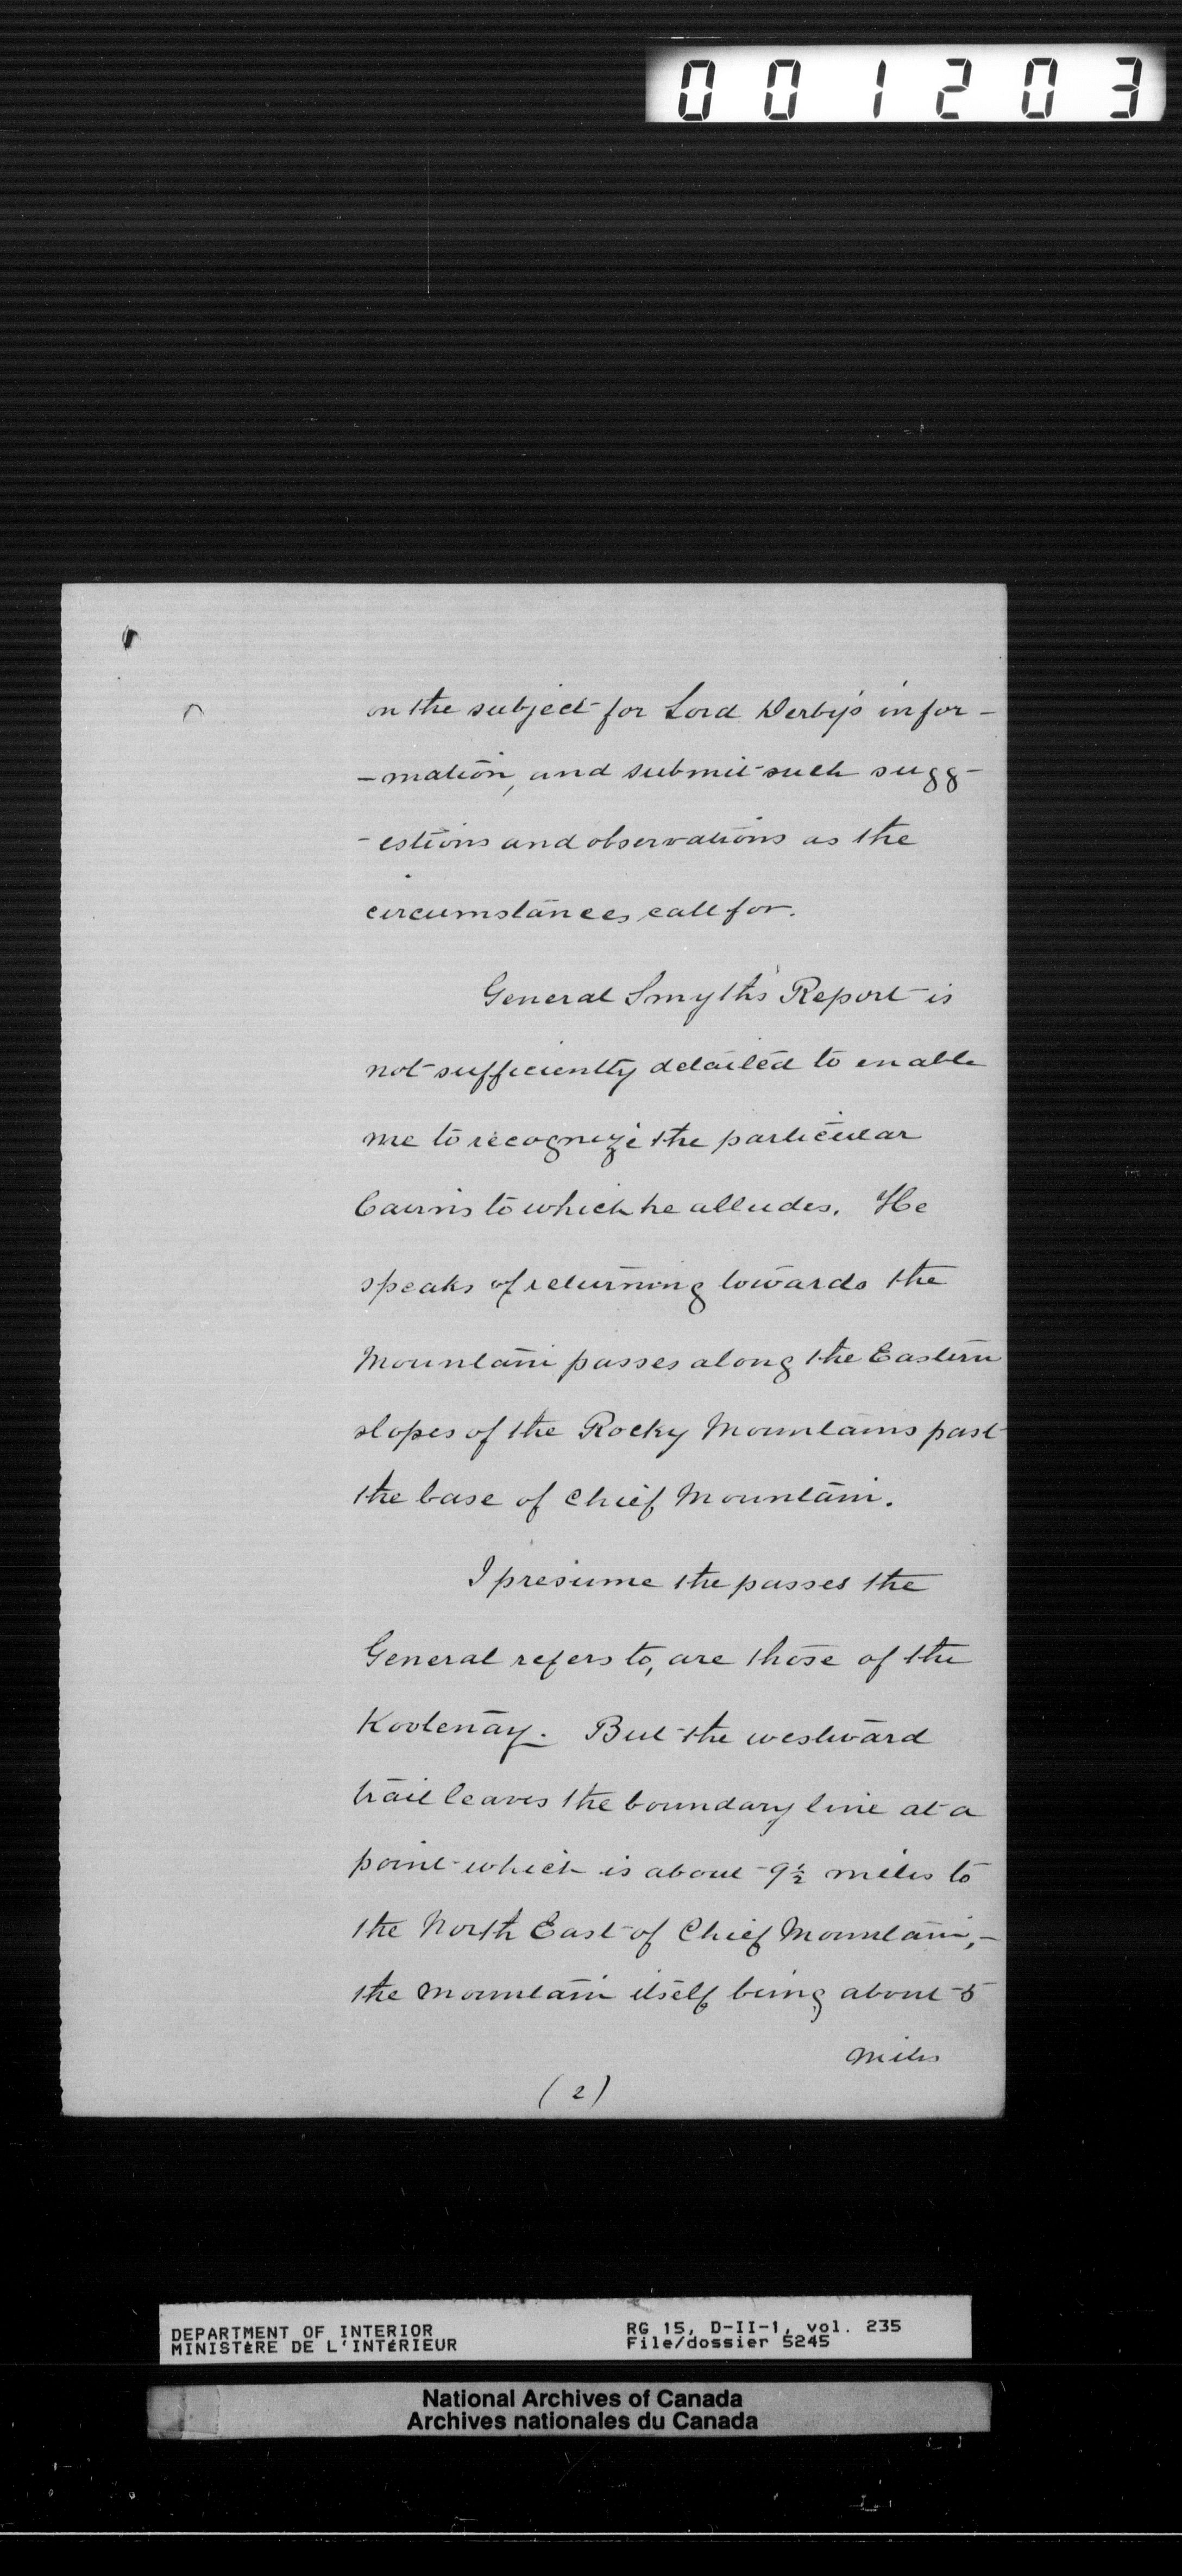 001203
on the subject for Lord Derby's infor-
-mation, and submit such sugg-
-estions and observations as the
circumstances call for.
General Smyth's Report is
not sufficiently detailed to enable
me to recognize the particular
Cairns to which he alludes. He
speaks of returning towards the
Mountain passes along the Eastern
slopes of the Rocky Mountains past
the base of Chief Mountain.
I presume the passes the
General refers to, are those of the
Kootenay. But the westward
trail leaves the boundary line at a
point which is about 9½ miles to
the North East of Chief Mountain,-
the mountain itself being about 5
miles
(2)
DEPARTMENT OF INTERIOR
MINISTÈRE DE L'INTÉRIEUR
RG 15, D-II-1, vol. 235
File/dossier 5245
National Archives of Canada
Archives nationales du Canada